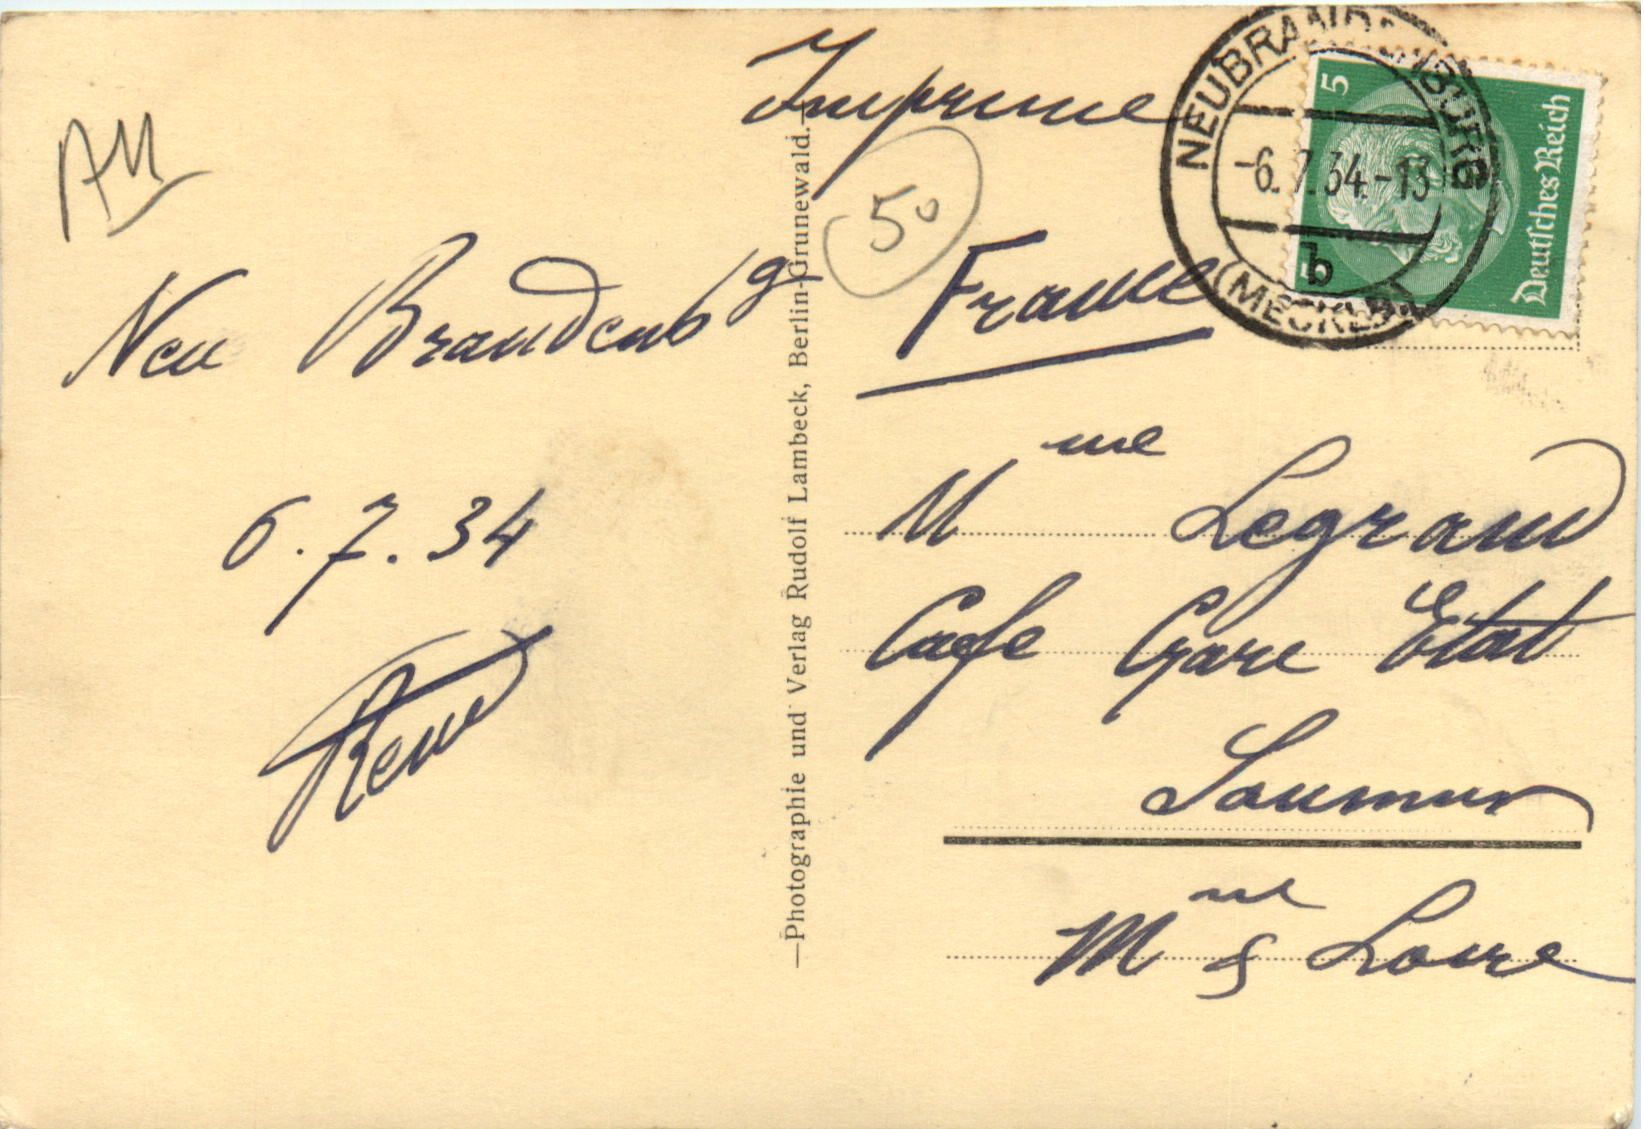 AM
Neu Brandenbg
6.7.34
—Photographie und Verlag Rudolf Lambeck, Berlin-Grunewald.—
Imprime
50
France
NEUBRANDENBURG
-6.7.34.-13
b
(MECKLB)
5
5
Deutsches Reich
Mme Legrand
Cafe Gare Etat
Saumur
M ne & Loire